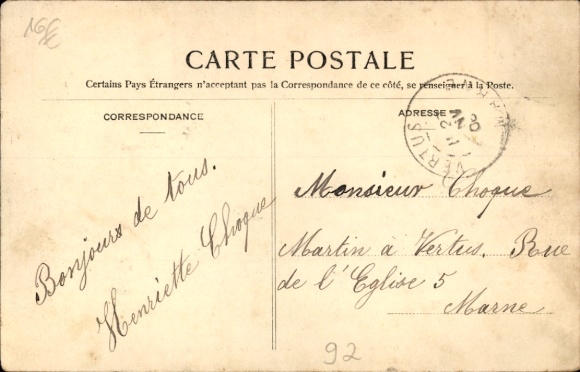 16€
CARTE POSTALE
Certains Pays Étrangers n'acceptent pas la Correspondance de ce côté, se renseigner à la Poste.
CORRESPONDANCE
Bonjours de tous.
Henriette Choque
ADRESSE
VERTUS
Monsieur Choque
Martin à Vertus. Rue
de l'Eglise 5
Marne
92